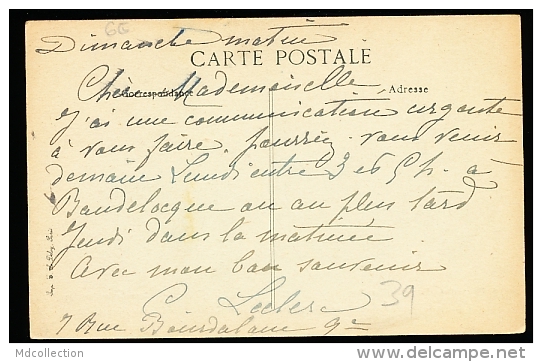 66
Dimanche matin
CARTE POSTALE
Correspondance
Adresse
Chère Mademoiselle
J'ai une communication urgente
à vous faire. pourriez vous venir
demain Lundi entre 3 et 5 h. à
Baudelocque ou au plus tard
Jeudi dans la matinée
Avec mon bon souvenir
Leclerc
39
7 Rue Bourdaloue 9e
Mdcollection
www.delcampe.net